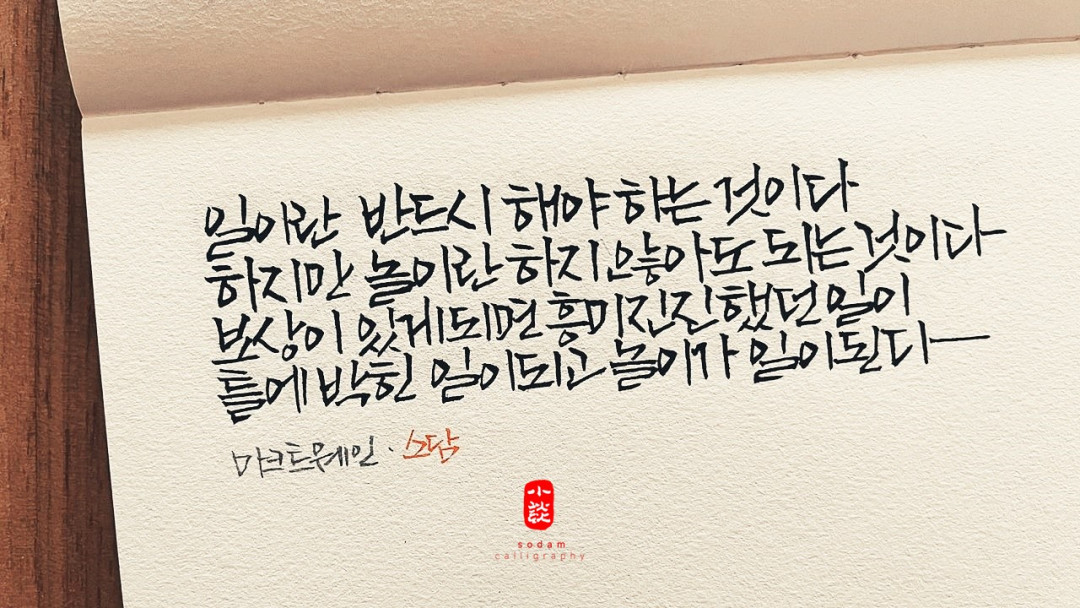 일이란 반드시 해야 하는 것이다
하지만 놀이란 하지 않아도 되는 것이다
보상이 있게되면 흥미진진했던 일이
틀에 박힌 일이되고 놀이가 일이된다
마크트웨인 · 소담
小談
sodam
calligraphy